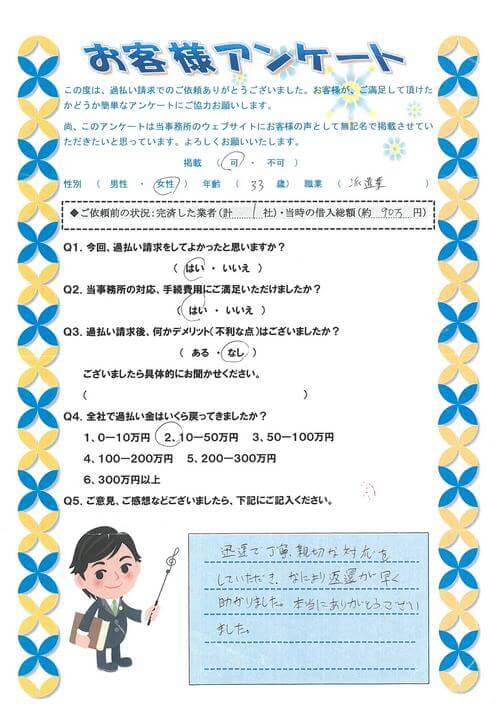 お客様アンケート
この度は、過払い請求でのご依頼ありがとうございました。お客様が、ご満足して頂けた
かどうか簡単なアンケートにご協力お願いします。
尚、このアンケートは当事務所のウェブサイトにお客様の声として無記名で掲載させてい
ただきたいと思っています。よろしくお願いいたします。
掲載 ( 可 ・ 不可 )
性別 ( 男性 ・ 女性 ) 年齢 ( 33 歳) 職業 ( 派遣業 )
◆ご依頼前の状況:完済した業者(計 1 社)・当時の借入総額(約 90万 円)
Q1. 今回、過払い請求をしてよかったと思いますか?
( はい ・ いいえ )
Q2. 当事務所の対応、手続費用にご満足いただけましたか?
( はい ・ いいえ )
Q3. 過払い請求後、何かデメリット(不利な点)はございましたか?
( ある ・ なし )
ございましたら具体的にお聞かせください。
( )
Q4. 全社で過払い金はいくら戻ってきましたか?
1、0ー10万円 2、10ー50万円 3、50ー100万円
4、100ー200万円 5、200ー300万円
6、300万円以上
Q5. ご意見、ご感想などございましたら、下記にご記入ください。
迅速で丁寧、親切な対応を
していただき、なにより返還が早く
助かりました。本当にありがとうござい
ました。